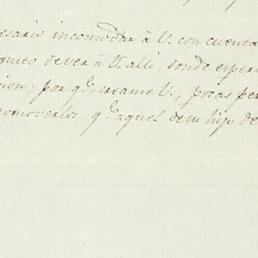 esario incomodar à V. con cuenta
ques de ver à V. alli, donde esper
ion; por q.e, creame V., pocas per
romoverlos, q.e aquel dem hijo de